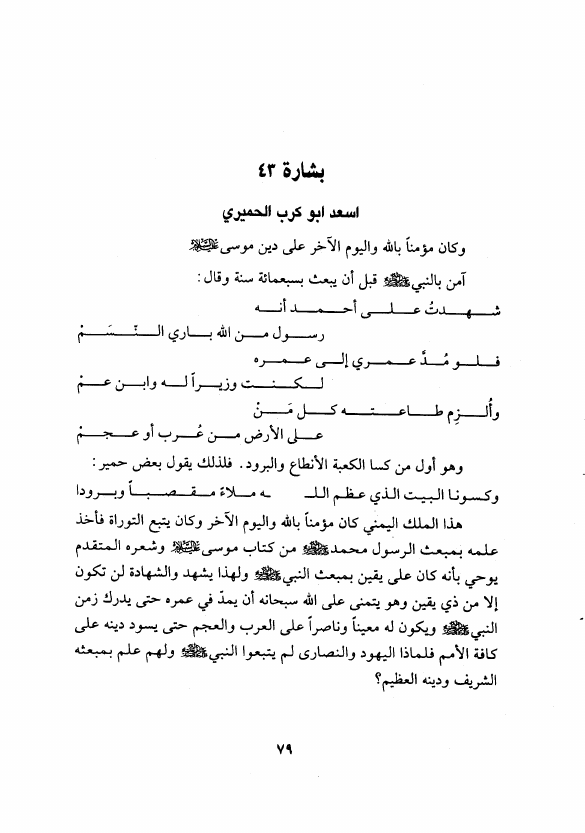 بشارة ٤٣
اسعد ابو كرب الحميري
وكان مؤمناً بالله واليوم الآخر على دين موسى عليه السلام
آمن بالنبي ﷺ قبل أن يبعث بسبعمائة سنة وقال :
شـهـدتُ عـلـى أحـمـد أنـه
رسـول مـن الله بـاري الـنّـسَـمْ
فـلـو مُـدَّ عـمـري إلـى عـمـره
لـكـنـت وزيـراً لـه وابـن عـمْ
وأُلـزِم طـاعـتـه كـل مَـنْ
عـلـى الأرض مـن عُـرب أو عـجـمْ
وهو أول من كسا الكعبة الأنطاع والبرود . فلذلك يقول بعض حمير :
وكسونا البيت الذي عظم اللـ ـه مـلاءً مـقـصـبـاً وبـرودا
هذا الملك اليمني كان مؤمناً بالله واليوم الآخر وكان يتبع التوراة فأخذ
علمه بمبعث الرسول محمد ﷺ من كتاب موسى عليه السلام وشعره المتقدم
يوحي بأنه كان على يقين بمبعث النبي ﷺ ولهذا يشهد والشهادة لن تكون
إلا من ذي يقين وهو يتمنى على الله سبحانه أن يمدّ في عمره حتى يدرك زمن
النبي ﷺ ويكون له معيناً وناصراً على العرب والعجم حتى يسود دينه على
كافة الأمم فلماذا اليهود والنصارى لم يتبعوا النبي ﷺ ولهم علم بمبعثه
الشريف ودينه العظيم؟
٧٩